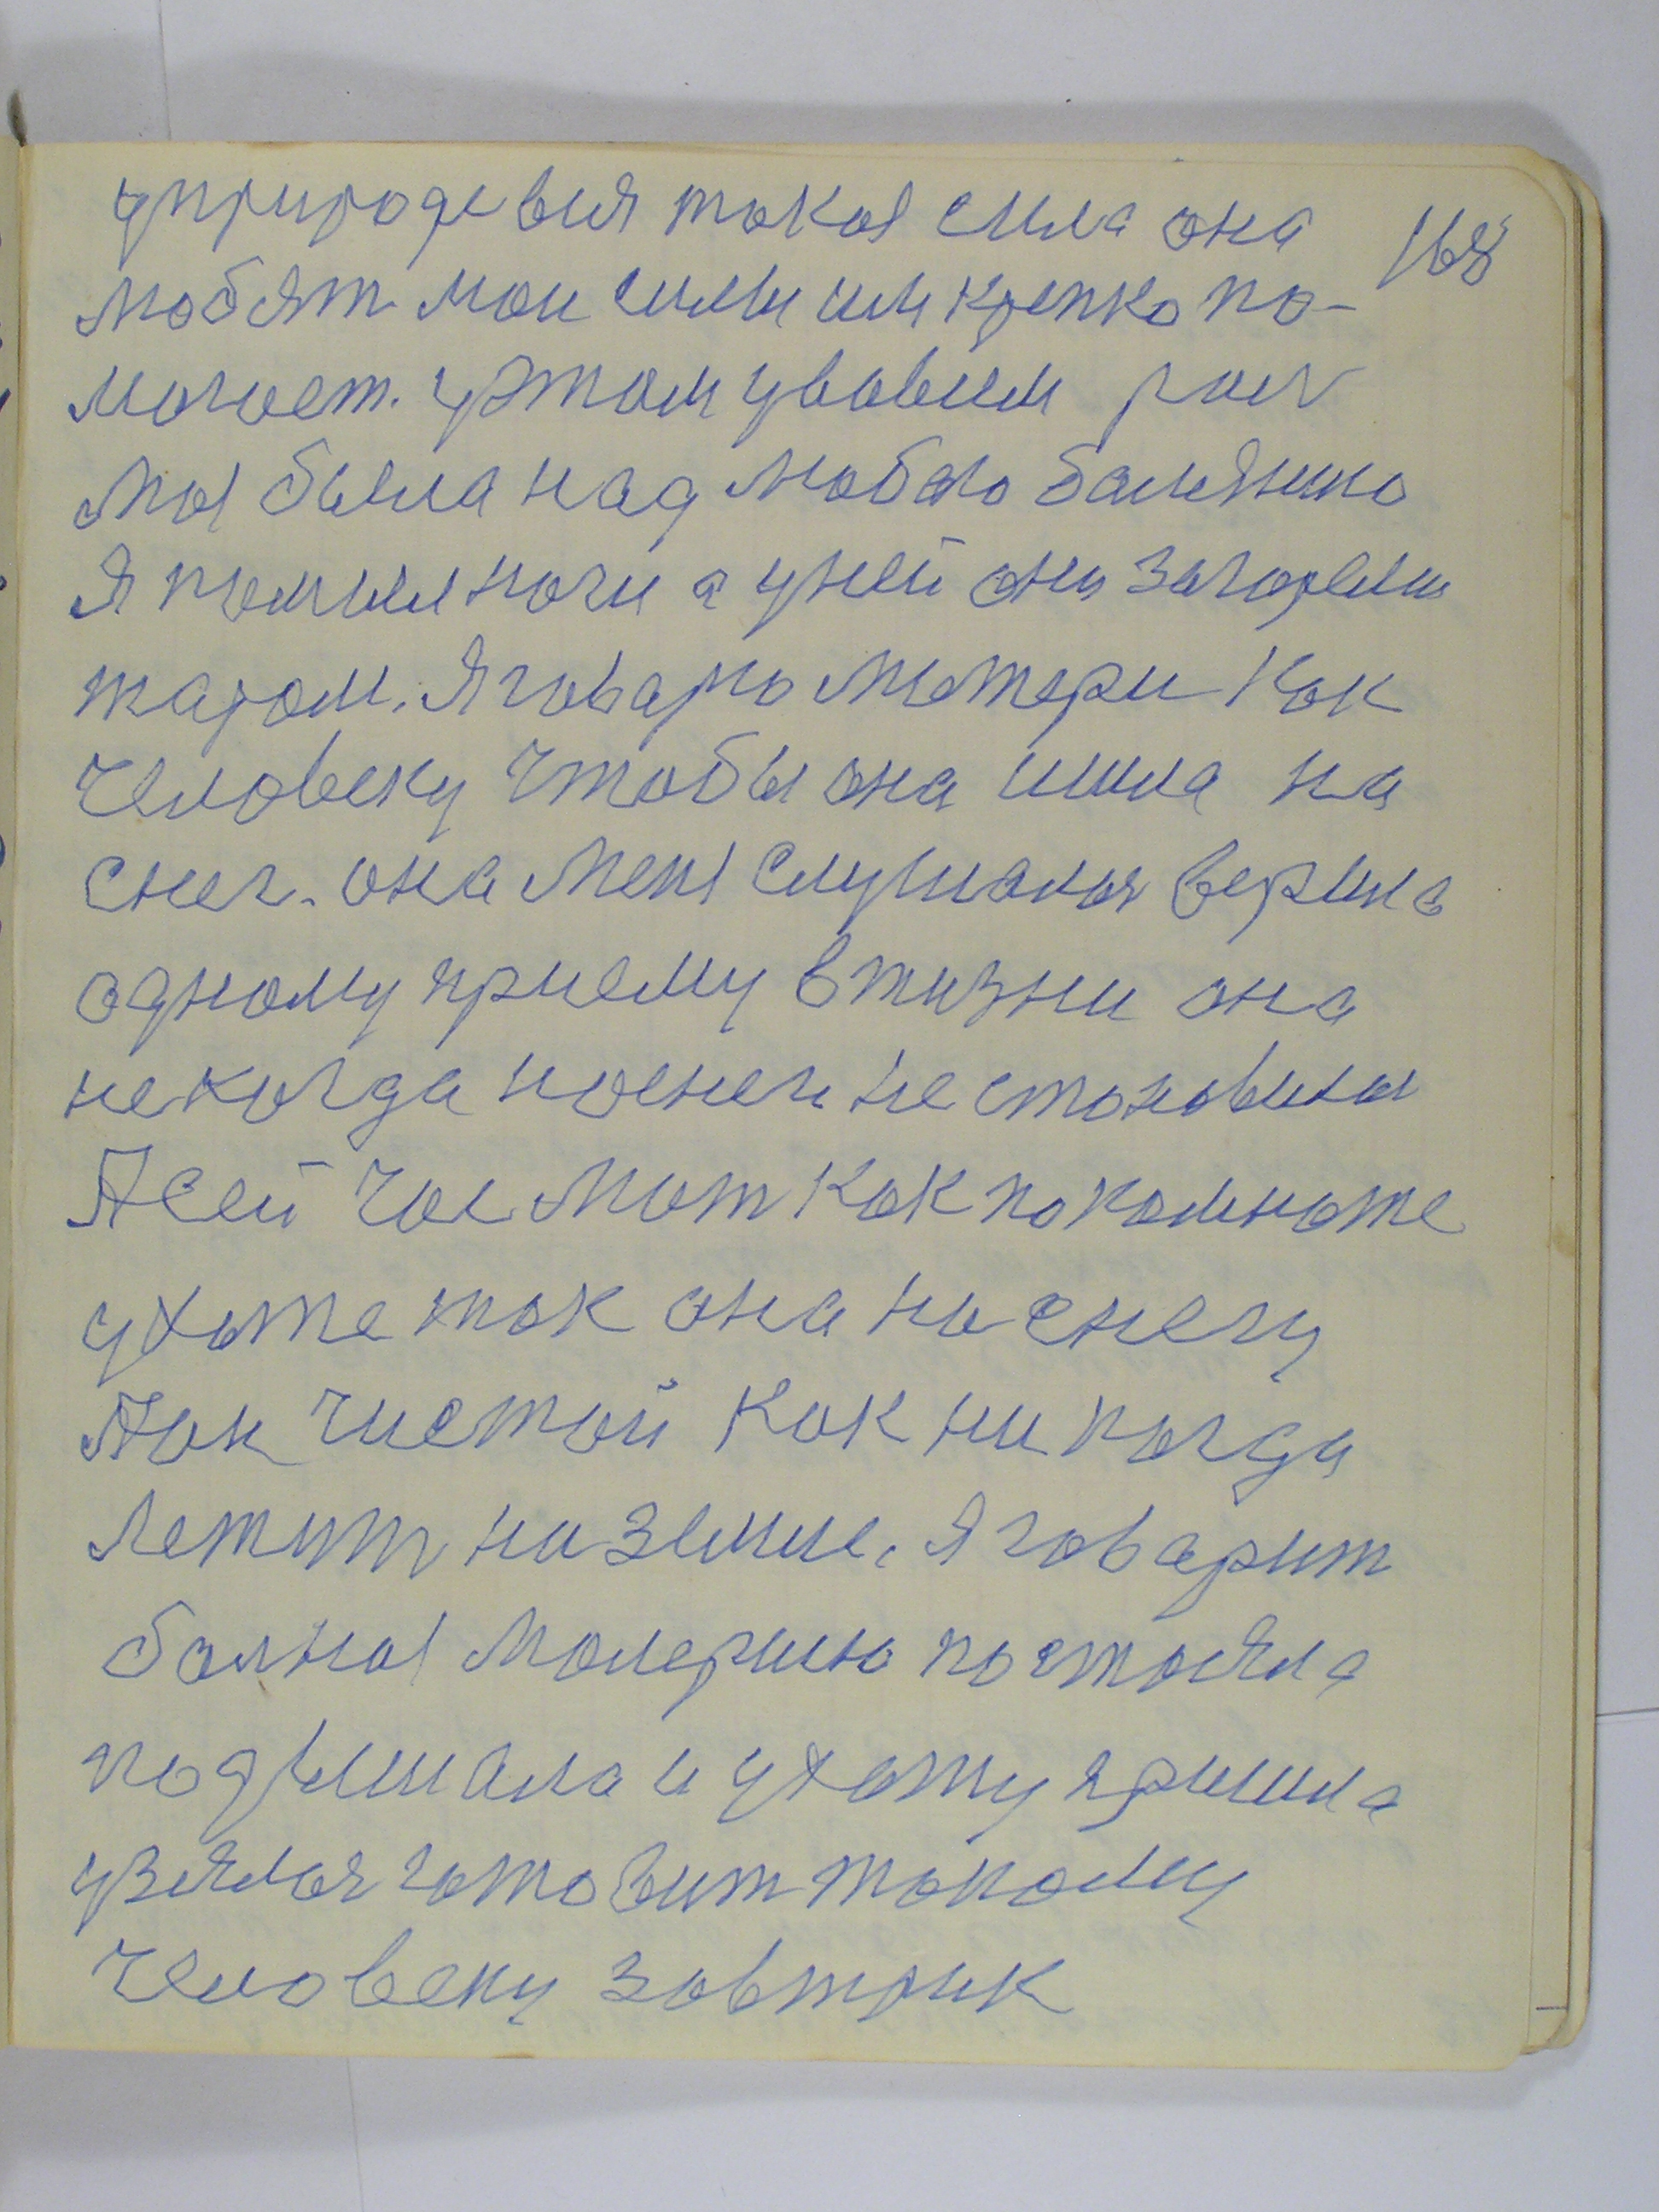 уприроде вия такая сила она 168
любят мои силы им крепко по-
могает. уэтом
моя была над любою болению
Я помыл ноги а у ней они загорели
жаром. Я говарю матери как
человеку чтобы она ишла на
снег. она меня слушалоя верила
одному приему в жизни она
некогда носнегу не становилоя
А сей час мат как по комноте
у хате так она по снегу
А он чистой как ни когда
лежит на земле. Я говарит
болная молерию постояла
подышала и у хату пришла
узялоя готовит такому
человеку завтрик